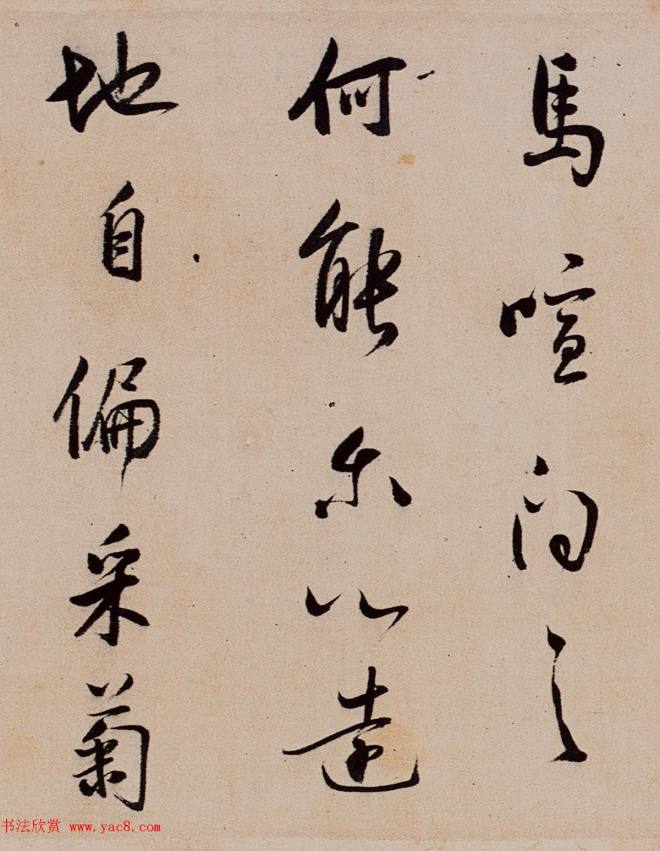 馬喧問之
何能尔心遠
地自偏采菊
书法欣赏 www.yac8.com